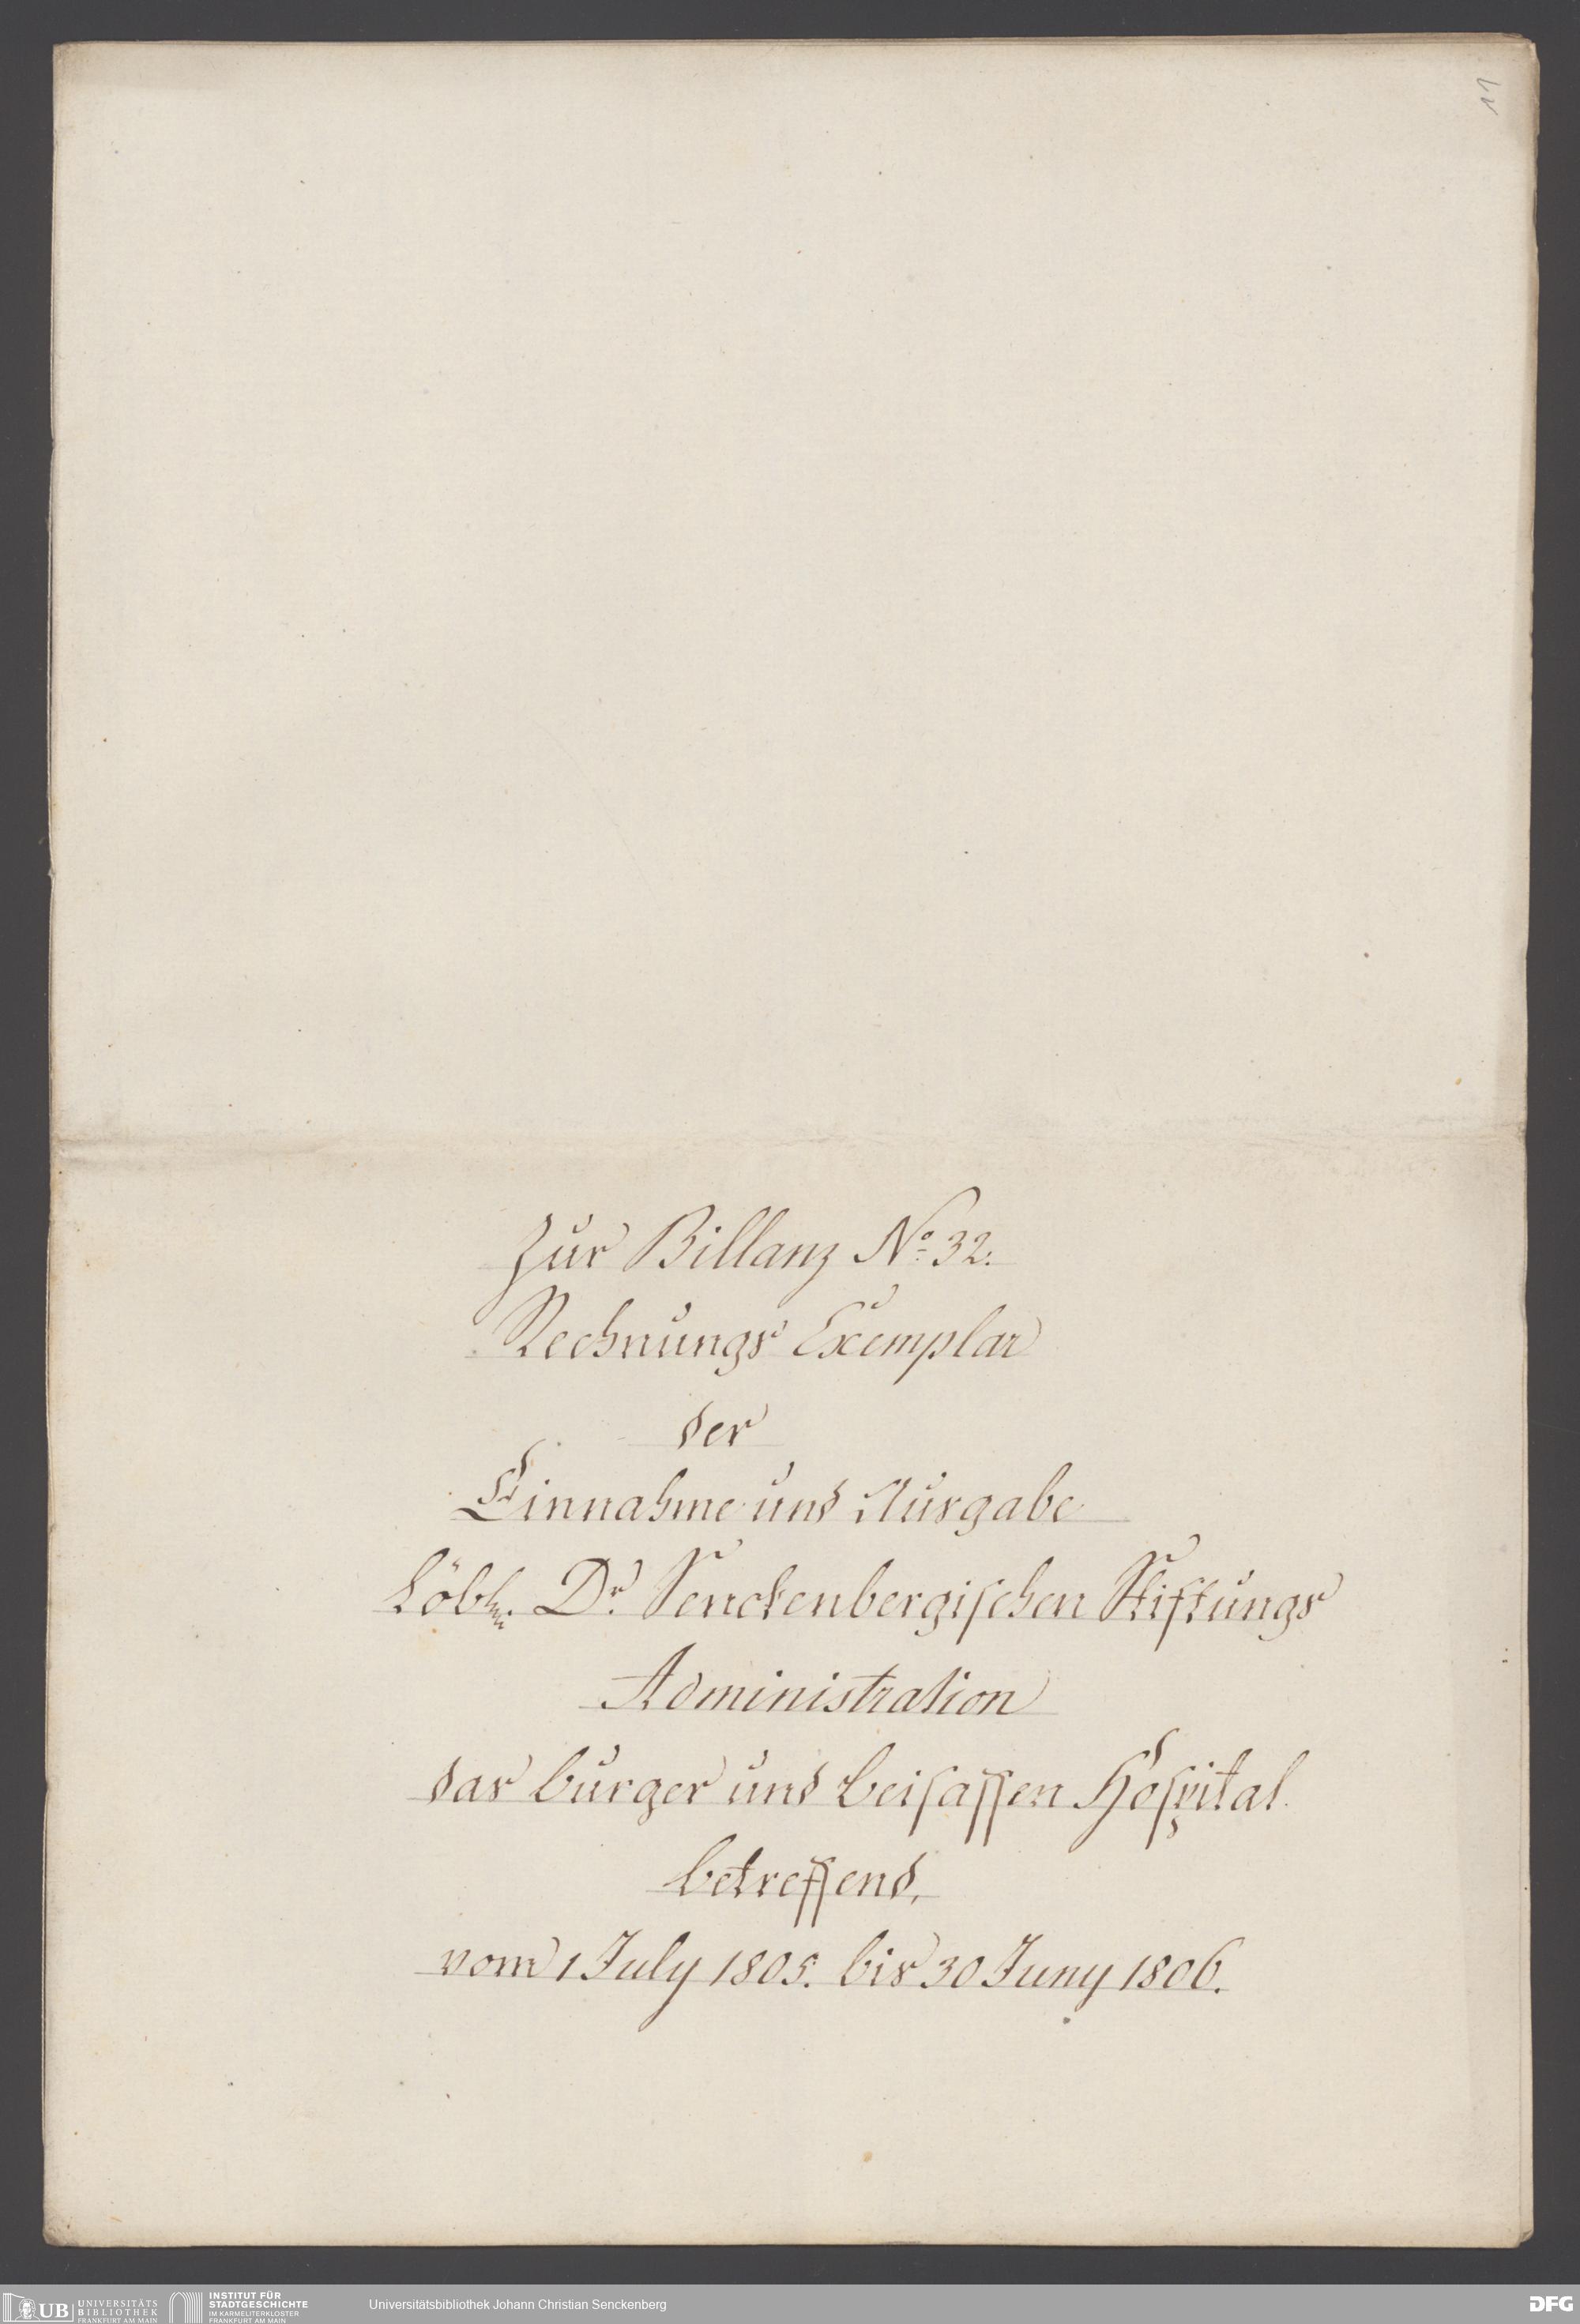 11
Zur Billanz No. 32.
Rechnungs Exemplar
der
Einnahme und Ausgabe
Löbl. Dr. Senckenbergischen Stiftungs
Administration
das burger und beisassen Hospital
betreffend,
vom 1 July 1805. bis 30 Juny 1806.
UB UNIVERSITÄTS BIBLIOTHEK FRANKFURT AM MAIN
INSTITUT FÜR STADTGESCHICHTE IM KARMELITERKLOSTER FRANKFURT AM MAIN
Universitätsbibliothek Johann Christian Senckenberg
DFG